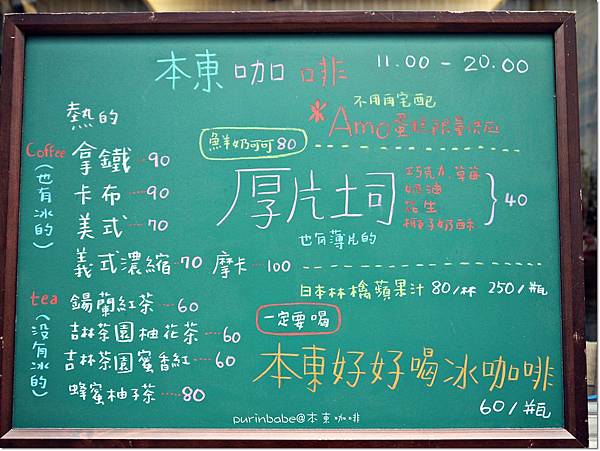 本東咖啡 11.00 - 20.00
熱的
不用再宅配
*Amo蛋糕限量供应
Coffee
(也有冰的)
拿鐵…90
卡布…90
美式…70
義式濃縮-70 摩卡…100
鮮奶可可80
厚片土司
也有薄片的
巧克力.草莓
奶油
花生
椰子奶酥
40
tea
(没有冰的)
錫蘭紅茶…60
吉林茶園柚花茶…60
吉林茶園蜜香紅…60
蜂蜜柚子茶…80
日本林檎蘋果汁 80/杯 250/瓶
一定要喝
本東好好喝冰咖啡
60/瓶
purinbabe@本東咖啡